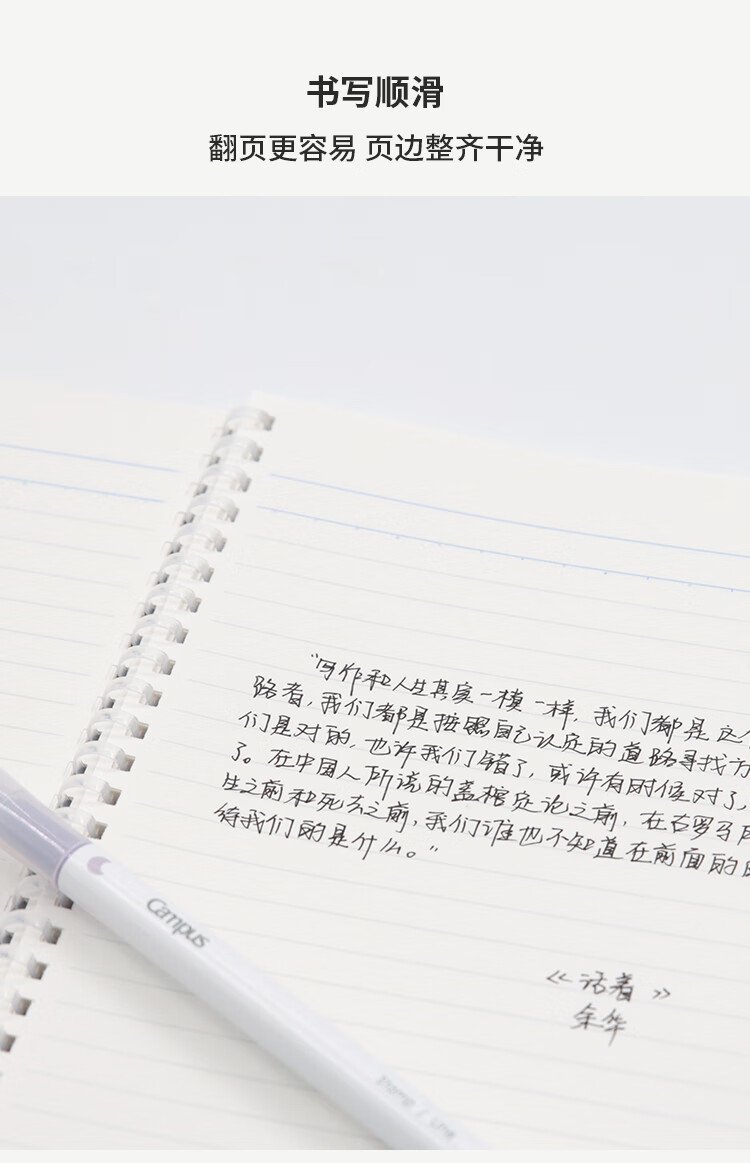 书写顺滑
翻页更容易 页边整齐干净
“写作和人生其实一模一样，我们都是这个
路者，我们都是按照自己认定的道路寻找方
们是对的，也许我们错了，或许有时候对了，
了。在中国人所说的盖棺定论之前，在古罗马
生之前和死去之前，我们谁也不知道在前面的
待我们的是什么。”
《活着》
余华
Campus